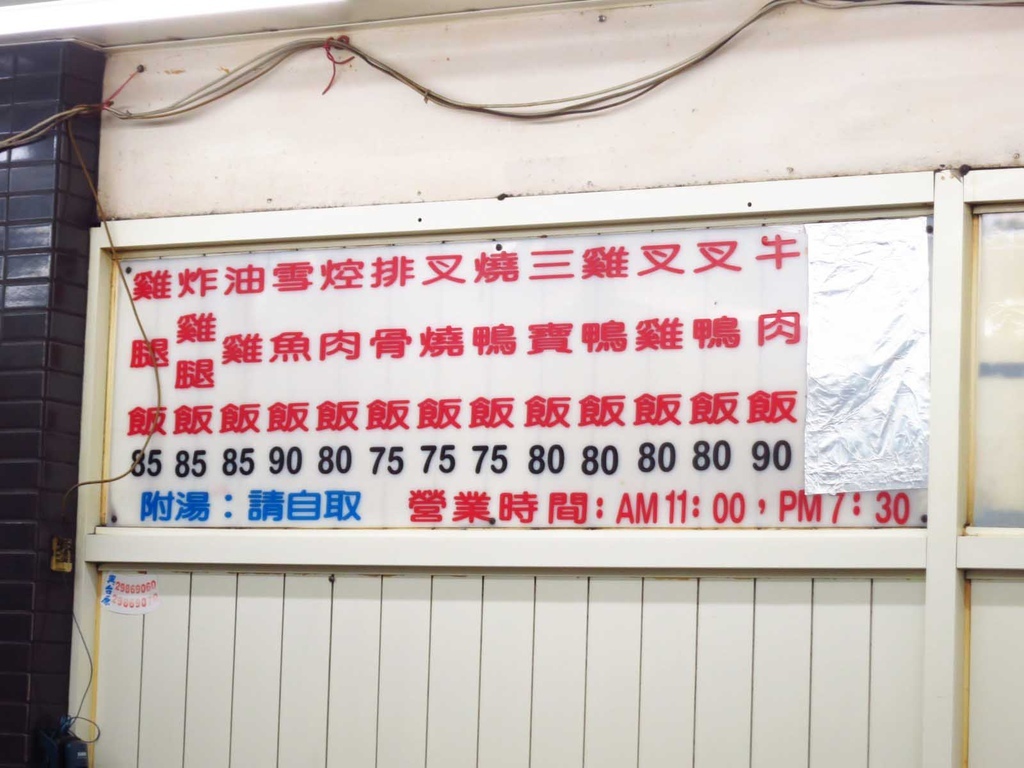 牛肉飯 90
叉鴨飯 80
叉雞飯 80
雞鴨飯 80
三寶飯 80
燒鴨飯 75
叉燒飯 75
排骨飯 75
焢肉飯 80
雪魚飯 90
油雞飯 85
炸雞腿飯 85
雞腿飯 85
附湯：請自取
營業時間：AM11：00，PM7：30
29869060